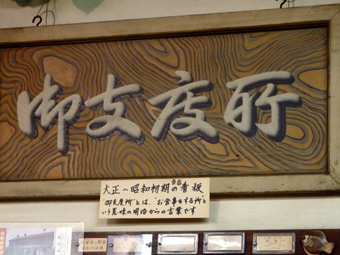 御支度所
大正〜昭和初期の看板
"御支度所"とは、"お食事をする所"と
いう意味の明治からの言葉です